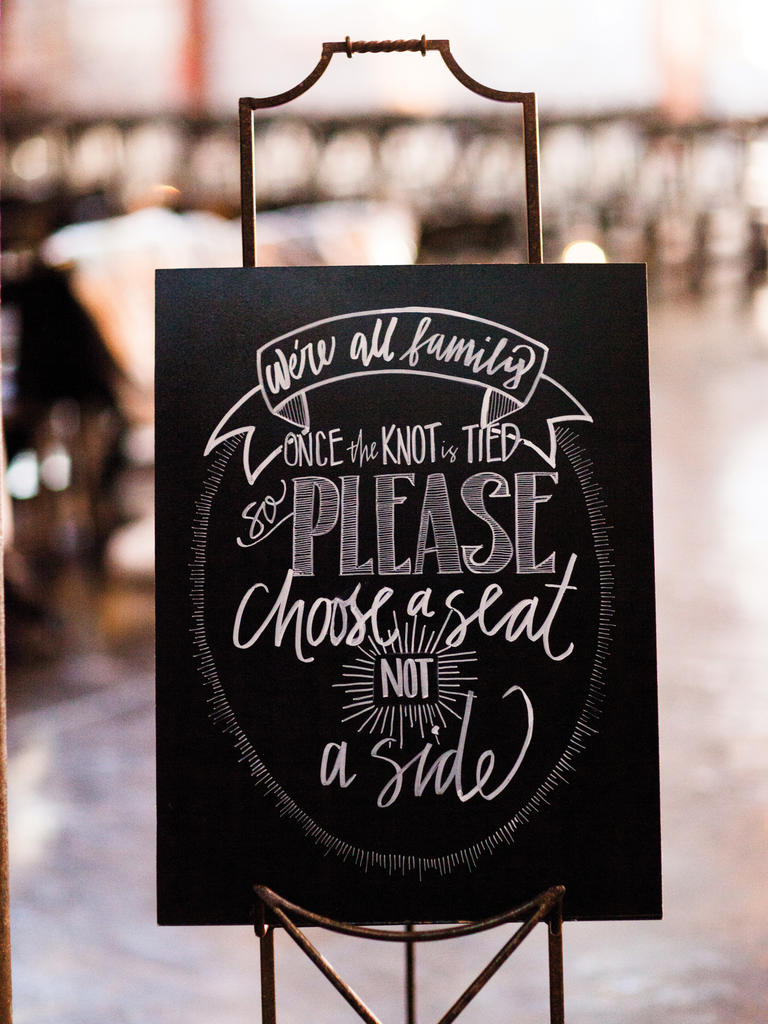 we're all family
ONCE the KNOT is TIED
so PLEASE
choose a seat
NOT
a side